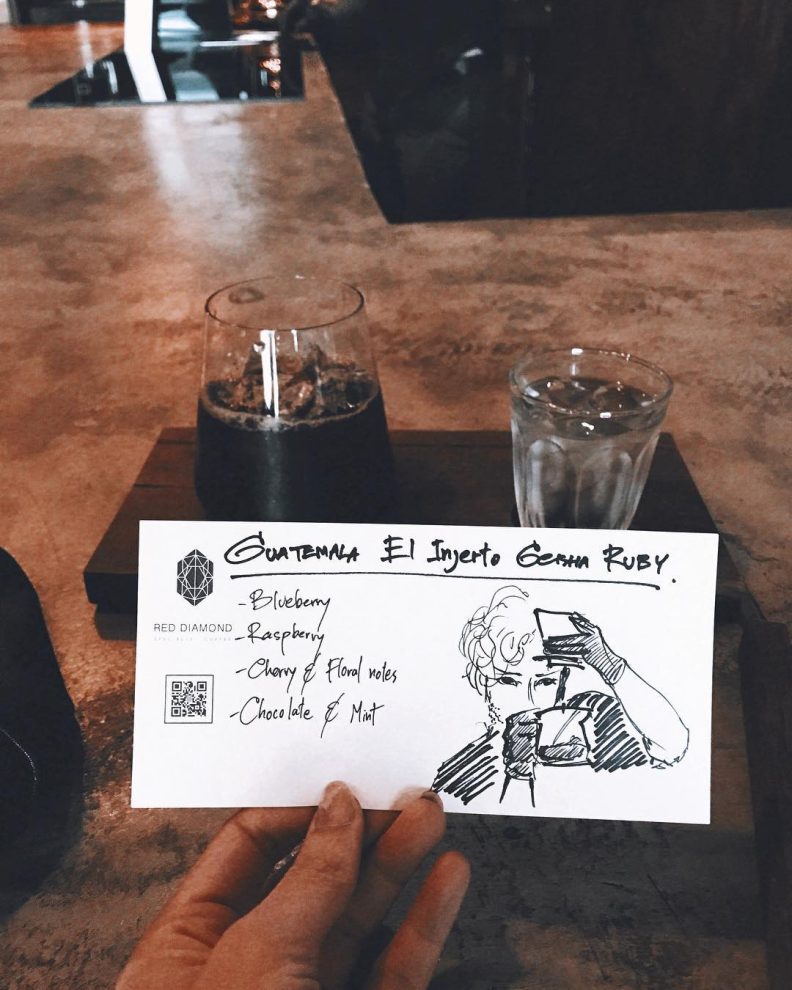 GUATEMALA El Injerto GEISHA RUBY.
RED DIAMOND
SPECIALTY COFFEE
- Blueberry
- Raspberry
- Cherry & Floral notes
- Chocolate & Mint